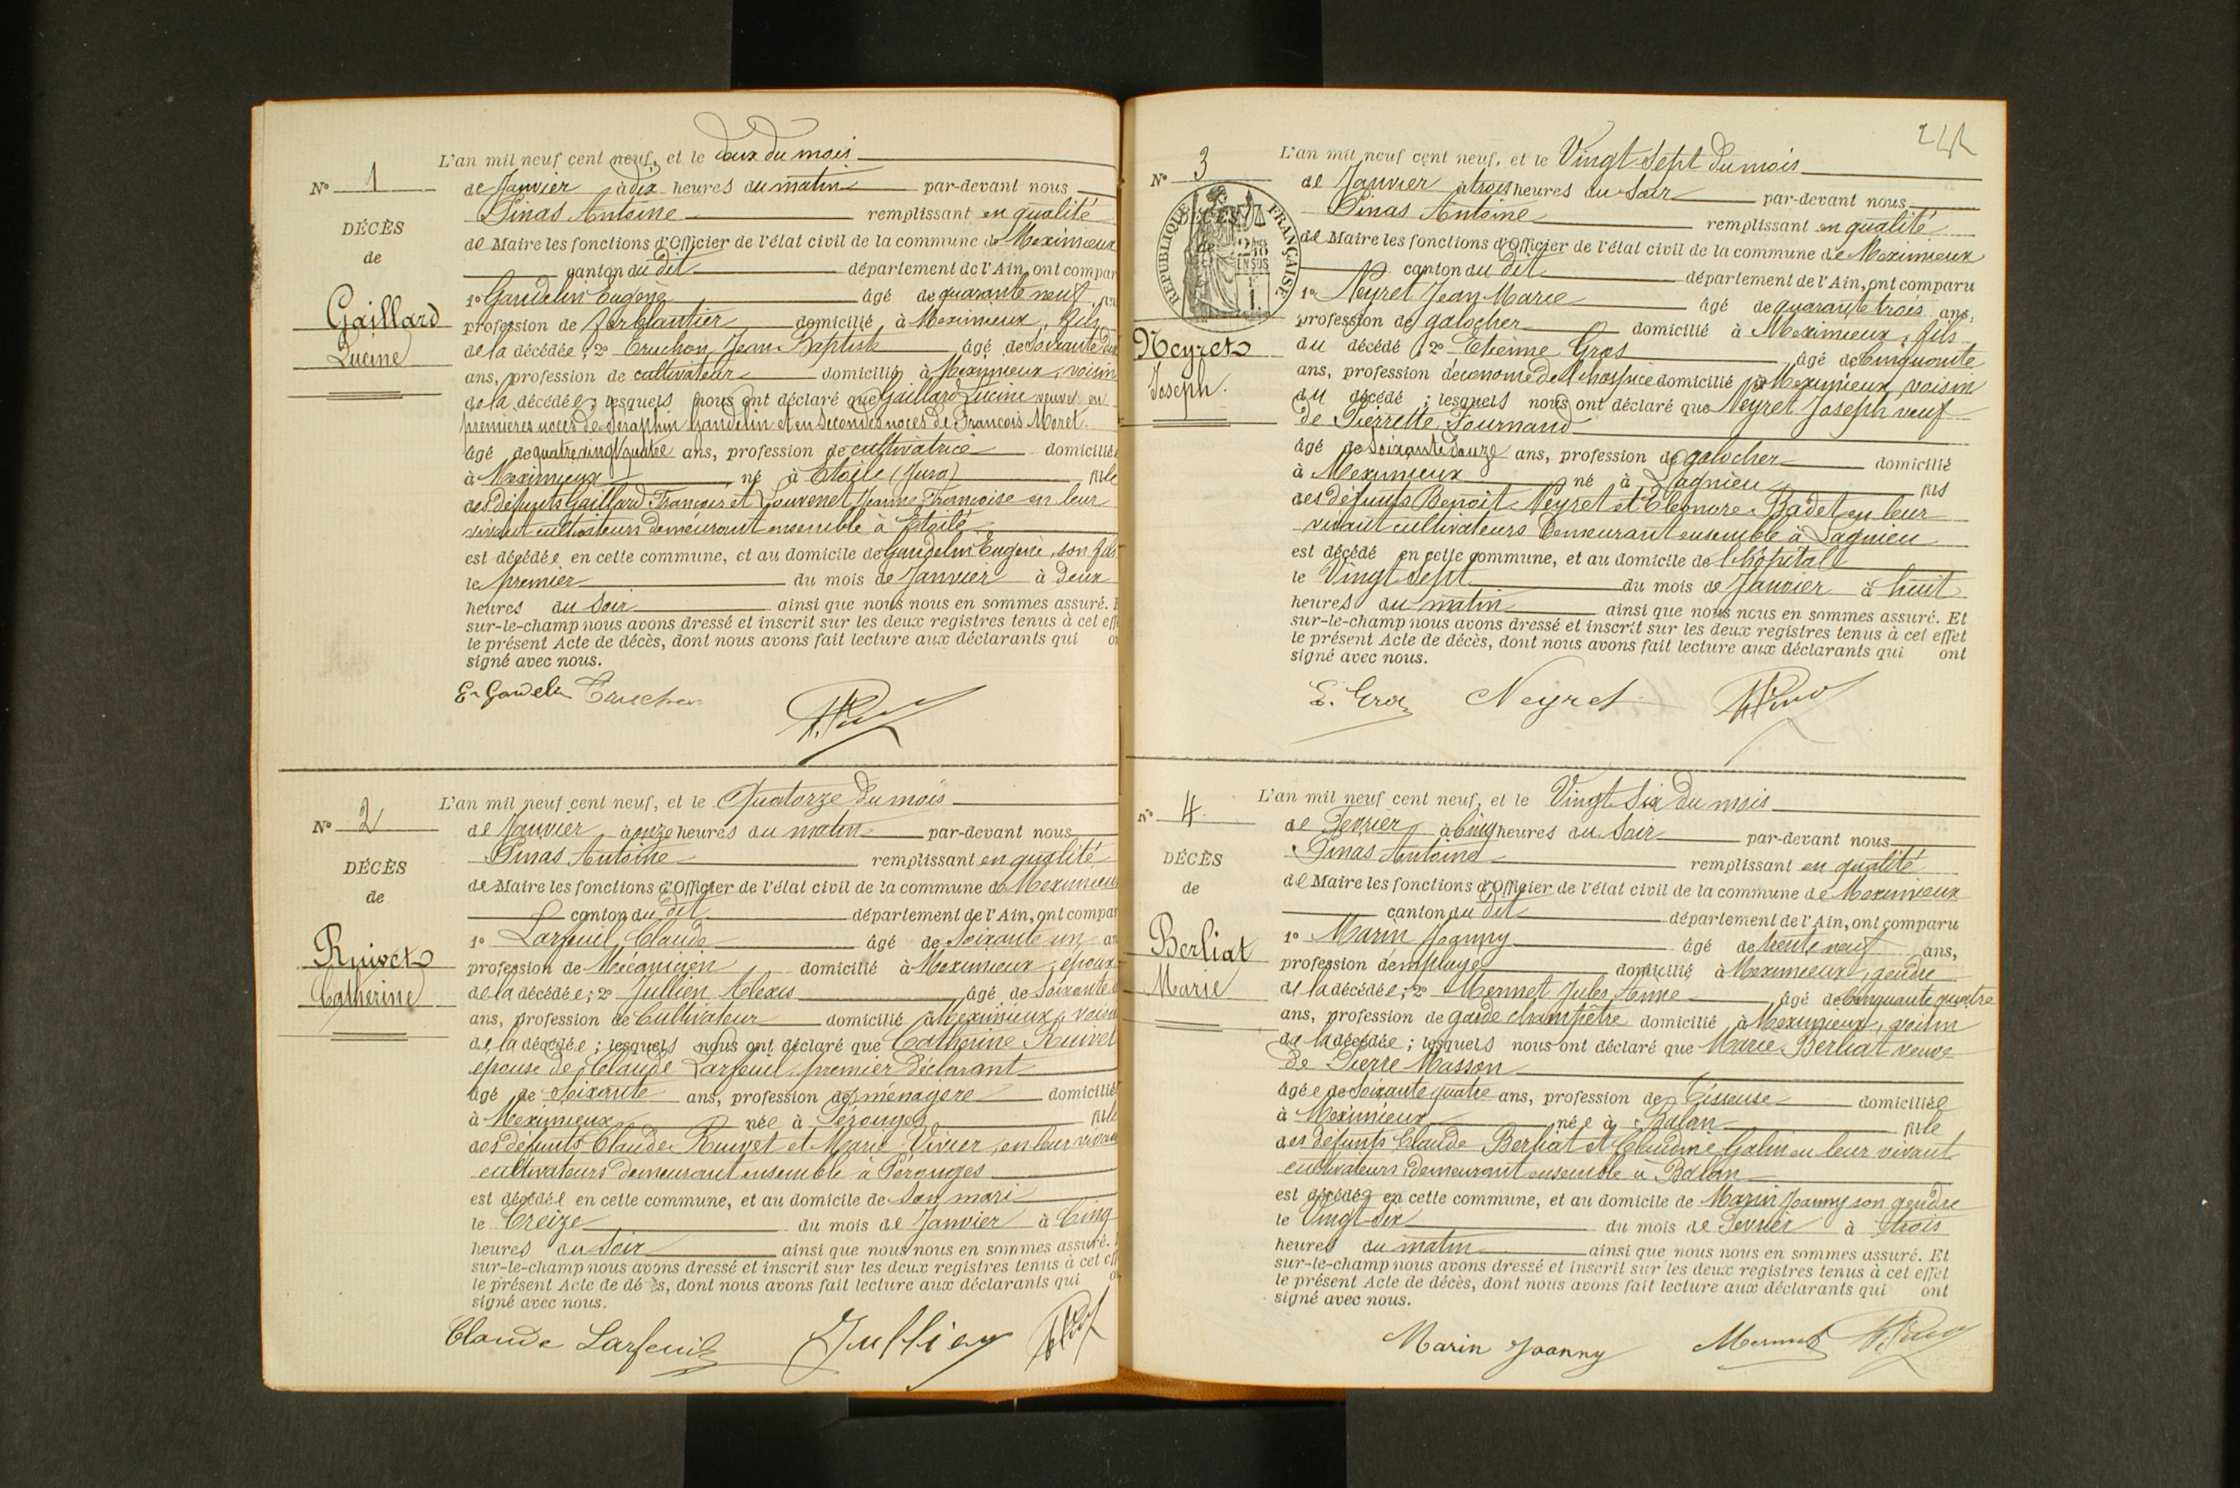 L'an mil neuf cent neuf, et le deux du mois
N° 1 de Janvier à dix heures du matin par-devant nous
Pinas Antoine remplissant en qualité
DÉCÈS
de Maire les fonctions d'Officier de l'état civil de la commune de Meximieux
de
canton du dit département de l'Ain, ont compar
1° Gaudelin Eugène âgé de quarante neuf
Gaillard
profession de ferblantier domicilié à Meximieux, fils
Lucine
de la décédée; 2° Truchon Jean Baptiste âgé de soixante
ans, profession de cultivateur domicilié à Meximieux, voisin
de la décédée; lesquels nous ont déclaré que Gaillard Lucine veuve en
premières noces de Séraphin Gaudelin et en secondes noces de François Moret.
âgé de quatre vingt quatre ans, profession de cultivatrice domicilié
à Meximieux né à Etoile (Jura) fille
des défunts Gaillard François et Louvenet Jeanne Françoise en leur
vivant cultivateurs demeurant ensemble à Etoile
est décédée en cette commune, et au domicile de Gaudelin Eugène, son fils
le premier du mois de Janvier à deux
heures du soir ainsi que nous nous en sommes assuré. E
sur-le-champ nous avons dressé et inscrit sur les deux registres tenus à cet eff
le présent Acte de décès, dont nous avons fait lecture aux déclarants qui o
signé avec nous.
E. Gaudelin Truchon
L'an mil neuf cent neuf, et le Quatorze du mois
N° 2 de Janvier à onze heures du matin par-devant nous
Pinas Antoine remplissant en qualité
DÉCÈS
de Maire les fonctions d'Officier de l'état civil de la commune de Meximieux
de
canton du dit département de l'Ain, ont compar
1° Larfeuil Claude âgé de Soixante un an
Ruivet
profession de Mécanicien domicilié à Meximieux, époux
Catherine
de la décédée; 2° Jullien Alexis âgé de soixante
ans, profession de Cultivateur domicilié à Meximieux, voisin
de la décédée; lesquels nous ont déclaré que Catherine Ruivet
épouse de Claude Larfeuil premier déclarant
âgé de soixante ans, profession de ménagère domicilié
à Meximieux née à Pérouges fille
des défunts Claude Ruivet et Marie Vivier, en leur vivant
cultivateurs demeurant ensemble à Pérouges
est décédée en cette commune, et au domicile de son mari
le treize du mois de Janvier à Cinq
heures du soir ainsi que nous nous en sommes assuré.
sur-le-champ nous avons dressé et inscrit sur les deux registres tenus à cet eff
le présent Acte de décès, dont nous avons fait lecture aux déclarants qui o
signé avec nous.
Claude Larfeuil Jullien
L'an mil neuf cent neuf, et le Vingt Sept du mois
N° 3 de Janvier à trois heures du Soir par-devant nous
Pinas Antoine remplissant en qualité
RÉPUBLIQUE FRANÇAISE
de Maire les fonctions d'Officier de l'état civil de la commune de Meximieux
canton du dit département de l'Ain, ont comparu
1° Neyret Jean Marie âgé de quarante trois ans,
profession de galocher domicilié à Meximieux, fils
Neyret
du décédé; 2° Etienne Gros âgé de Cinquante
Joseph.
ans, profession d'économe de l'hospice domicilié à Meximieux, voisin
du décédé; lesquels nous ont déclaré que Neyret Joseph veuf
de Pierrette Fournand
âgé de soixante douze ans, profession de galocher domicilié
à Meximieux né à Lagnieu fils
des défunts Benoit Neyret et Eléonore Badet en leur
vivant cultivateurs demeurant ensemble à Lagnieu
est décédé en cette commune, et au domicile de l'hôpital
le Vingt Sept du mois de Janvier à huit
heures du matin ainsi que nous nous en sommes assuré. Et
sur-le-champ nous avons dressé et inscrit sur les deux registres tenus à cet effet
le présent Acte de décès, dont nous avons fait lecture aux déclarants qui ont
signé avec nous.
E. Gros Neyret
L'an mil neuf cent neuf, et le Vingt Six du mois
N° 4. de Février à Cinq heures du Soir par-devant nous
Pinas Antoine remplissant en qualité
DÉCÈS
de Maire les fonctions d'Officier de l'état civil de la commune de Meximieux
de
canton du dit département de l'Ain, ont comparu
1° Marin Joanny âgé de trente neuf ans,
Berliat
profession d'employé domicilié à Meximieux, gendre
Marie
de la décédée; 2° Mermet Jules Anne âgé de Cinquante quatre
ans, profession de garde champêtre domicilié à Meximieux, voisin
de la décédée; lesquels nous ont déclaré que Marie Berliat veuve
de Pierre Masson
âgée de Soixante quatre ans, profession de Tisseuse domiciliée
à Meximieux née à Balan fille
des défunts Claude Berliat et Claudine Galin en leur vivant
cultivateurs demeurant ensemble à Balan
est décédée en cette commune, et au domicile de Marin Joanny son gendre
le Vingt Six du mois de Février à trois
heures du matin ainsi que nous nous en sommes assuré. Et
sur-le-champ nous avons dressé et inscrit sur les deux registres tenus à cet effet
le présent Acte de décès, dont nous avons fait lecture aux déclarants qui ont
signé avec nous.
Marin Joanny Mermet